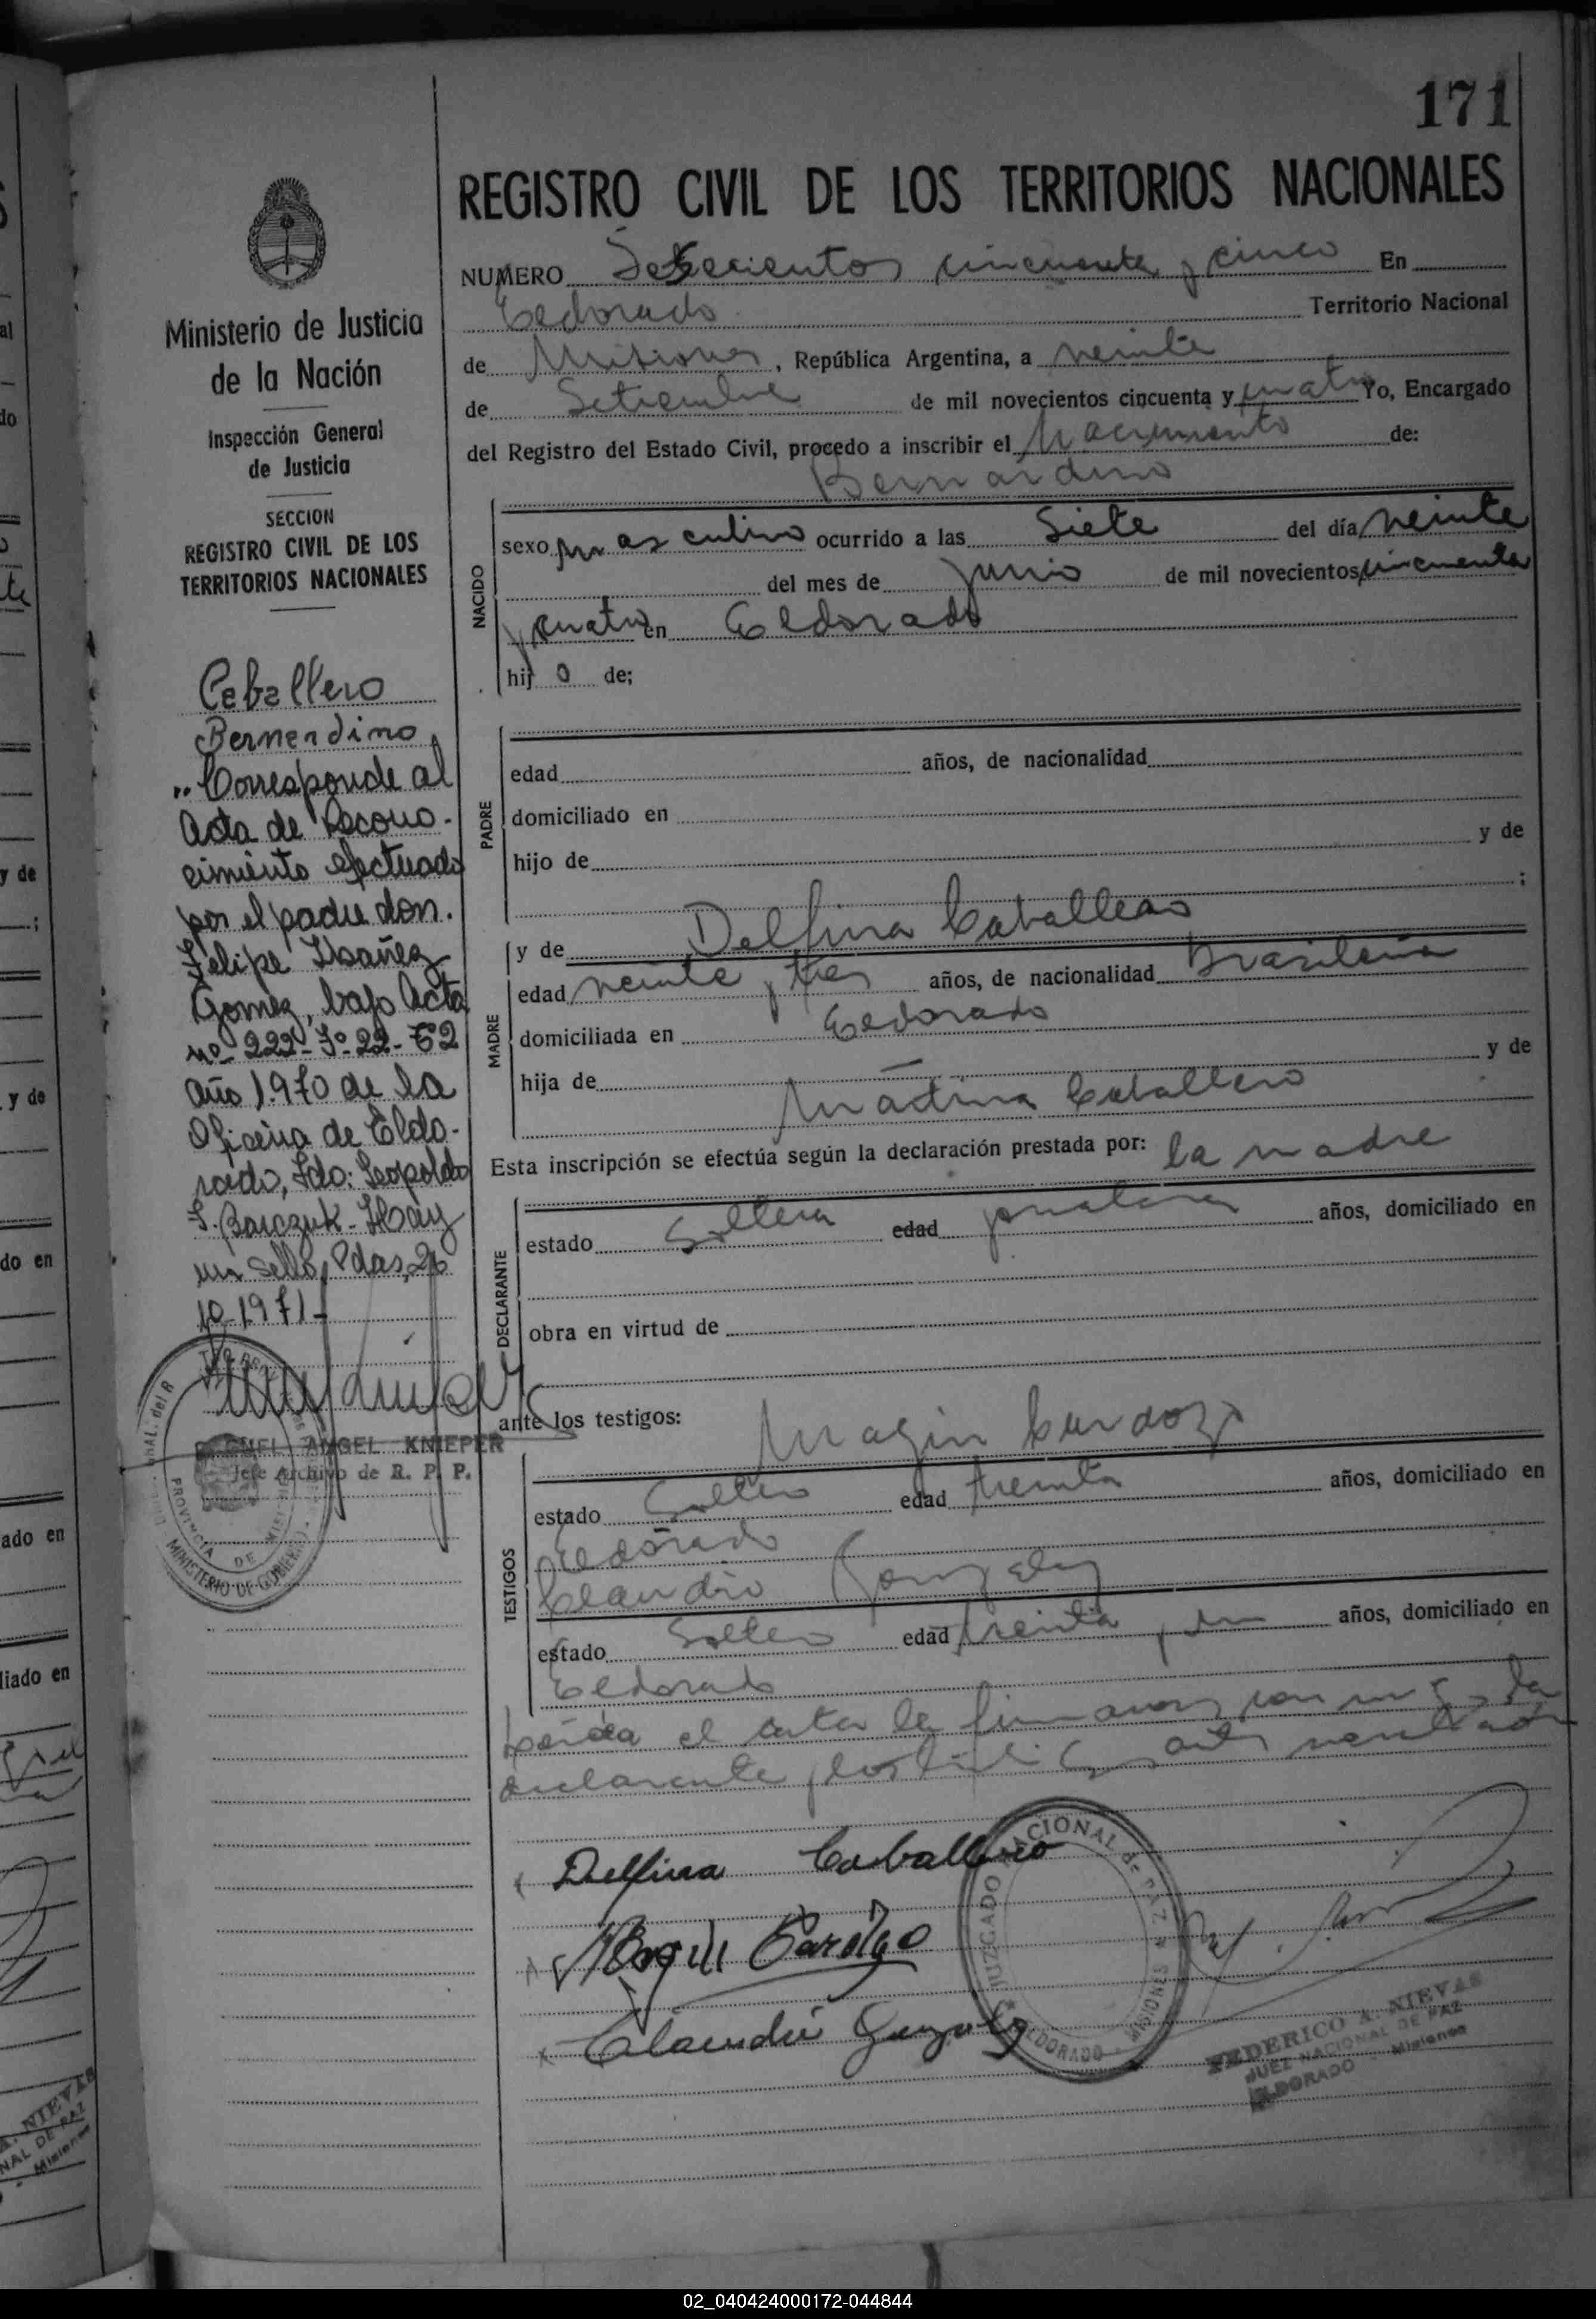 171
REGISTRO CIVIL DE LOS TERRITORIOS NACIONALES
NUMERO cincuenta y cinco En
Eldorado Territorio Nacional
de Misiones, República Argentina, a veinte
de Setiembre de mil novecientos cincuenta y cuatro Yo, Encargado
del Registro del Estado Civil, procedo a inscribir el Nacimiento de:
Bernardino
NACIDO
sexo masculino ocurrido a las Siete del día veinte
del mes de junio de mil novecientos cincuenta
y cuatro en Eldorado
hijo de;
PADRE
edad años, de nacionalidad
domiciliado en
hijo de y de
;
MADRE
y de Delfina Caballero
edad veinte y tres años, de nacionalidad Brasileña
domiciliada en Eldorado
hija de — y de
Martina Caballero
Esta inscripción se efectúa según la declaración prestada por: la madre
DECLARANTE
estado Soltera edad años, domiciliado en
obra en virtud de
ante los testigos: Magin Cardozo
TESTIGOS
estado Soltero edad treinta años, domiciliado en
Eldorado
Claudio Gonzalez
estado Soltero edad treinta y un años, domiciliado en
Eldorado
Leída el acta la firmaron conmigo la
declarante y los testigos
Delfina Caballero
Claudio Gonzalez
JUZGADO NACIONAL de PAZ
ELDORADO MISIONES
FEDERICO A. NIEVAS
JUEZ NACIONAL DE PAZ
ELDORADO - Misiones
Ministerio de Justicia
de la Nación
Inspección General
de Justicia
SECCION
REGISTRO CIVIL DE LOS
TERRITORIOS NACIONALES
Caballero
Bernardino
"Corresponde al
Acta de Recono-
cimiento efectuado
por el padre don.
Felipe Ibañez
Gomez, bajo Acta
nº 222-Fº 22-T2
Año 1.970 de la
Oficina de Eldo-
rado, Fdo: Leopoldo
S. Barczuk - Hay
un sello, Pdas, 26
10-1971-
ANGEL KNIEPER
Jefe Archivo de R. P. P.
PROVINCIA DE MISIONES
MINISTERIO DE GOBIERNO
02_040424000172-044844